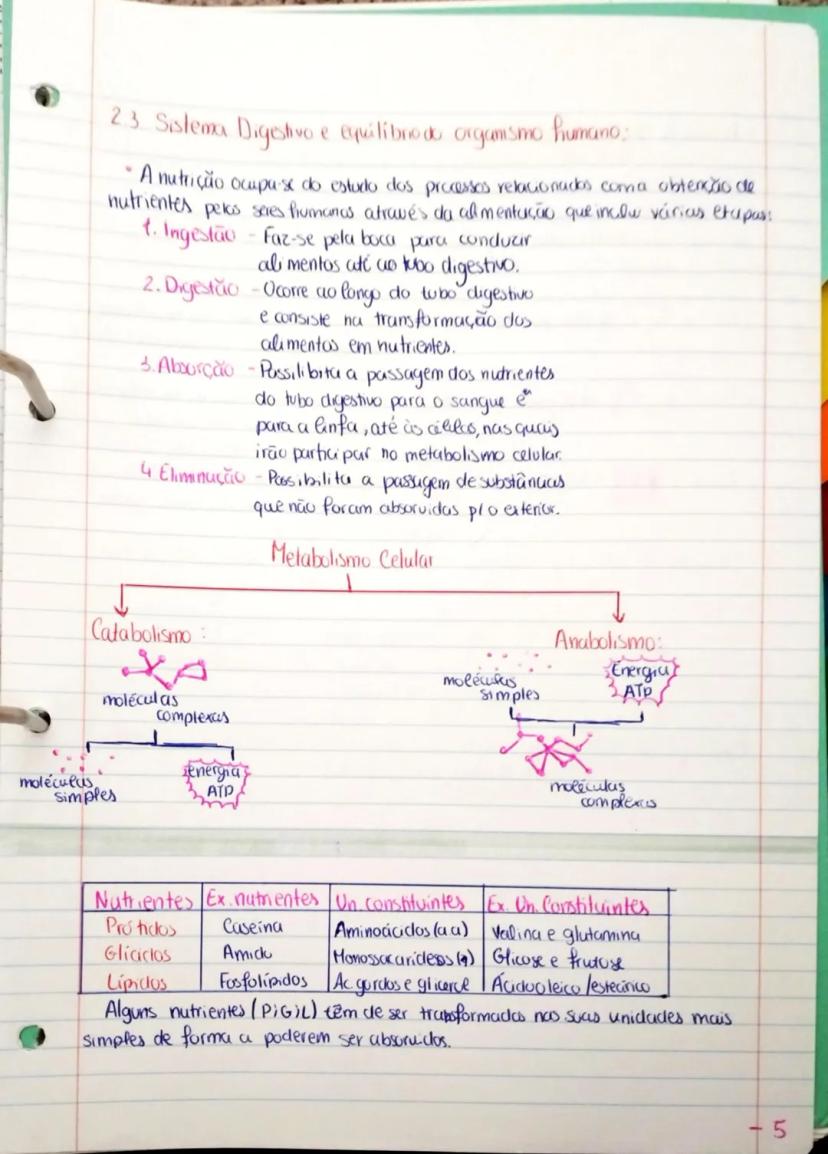 2.3 Sistema Digestivo e equilíbrio do organismo humano:
• A nutrição ocupa-se do estudo dos processos relacionados com a obtenção de
nutrientes pelos seres humanos através da alimentação que inclui várias etapas:
1. Ingestão - Faz-se pela boca para conduzir
alimentos até ao tubo digestivo.
2. Digestão - Ocorre ao longo do tubo digestivo
e consiste na transformação dos
alimentos em nutrientes.
3. Absorção - Possilibita a passagem dos nutrientes
do tubo digestivo para o sangue e
para a linfa, até às células, nas quais
irão participar no metabolismo celular.
4 Eliminação - Possibilita a passagem de substâncias
que não foram absorvidas p/o exterior.
Metabolismo Celular
Catabolismo:
Anabolismo:
moléculas
complexas
moléculas
simples
energia
ATP
moléculas
simples
Energia
ATP
moléculas
complexas
Nutrientes Ex. nutrientes Un. constituintes Ex. Un. Constituintes
Prótidos Caseína Aminoácidos (aa) Valina e glutamina
Glícidos Amido Monossacarídeos Glicose e frutose
Lípidos Fosfolípidos Ac. gordos e Ácido oleico/esteárico
Alguns nutrientes (P;G;L) têm de ser transformados nas suas unidades mais
simples de forma a poderem ser absorvidos.
- 5